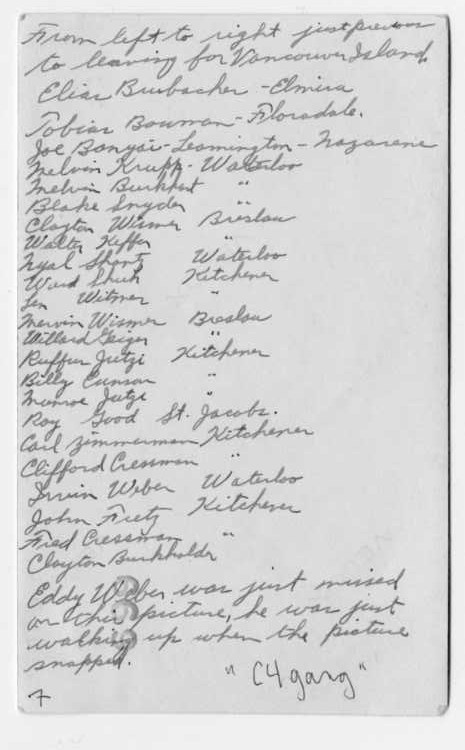 From left to right just previous
to leaving for Vancouver Island.
Elias Brubacher - Elmira
Tobias Bauman - Floradale.
Joe Banyai - Leamington - Nazarene
Melvin Krupp - Waterloo
Melvin Burkhart "
Blake Snyder "
Clayton Wismer Breslau
Walter Keffer "
Nyal Shantz Waterloo
Ward Shuh Kitchener
Len Witmer "
Mervin Wismer Breslau
Willard Geiger "
Ruffus Jutzi Kitchener
Billy Cunson "
Munroe Jutzi "
Roy Good St. Jacobs.
Carl Zimmerman Kitchener
Clifford Cressman "
Irvin Weber Waterloo
John Fretz Kitchener
Fred Cressman "
Clayton Burkholder
Eddy Weber was just missed
on this picture, he was just
walking up when the picture
snapped.
"C4 gang"